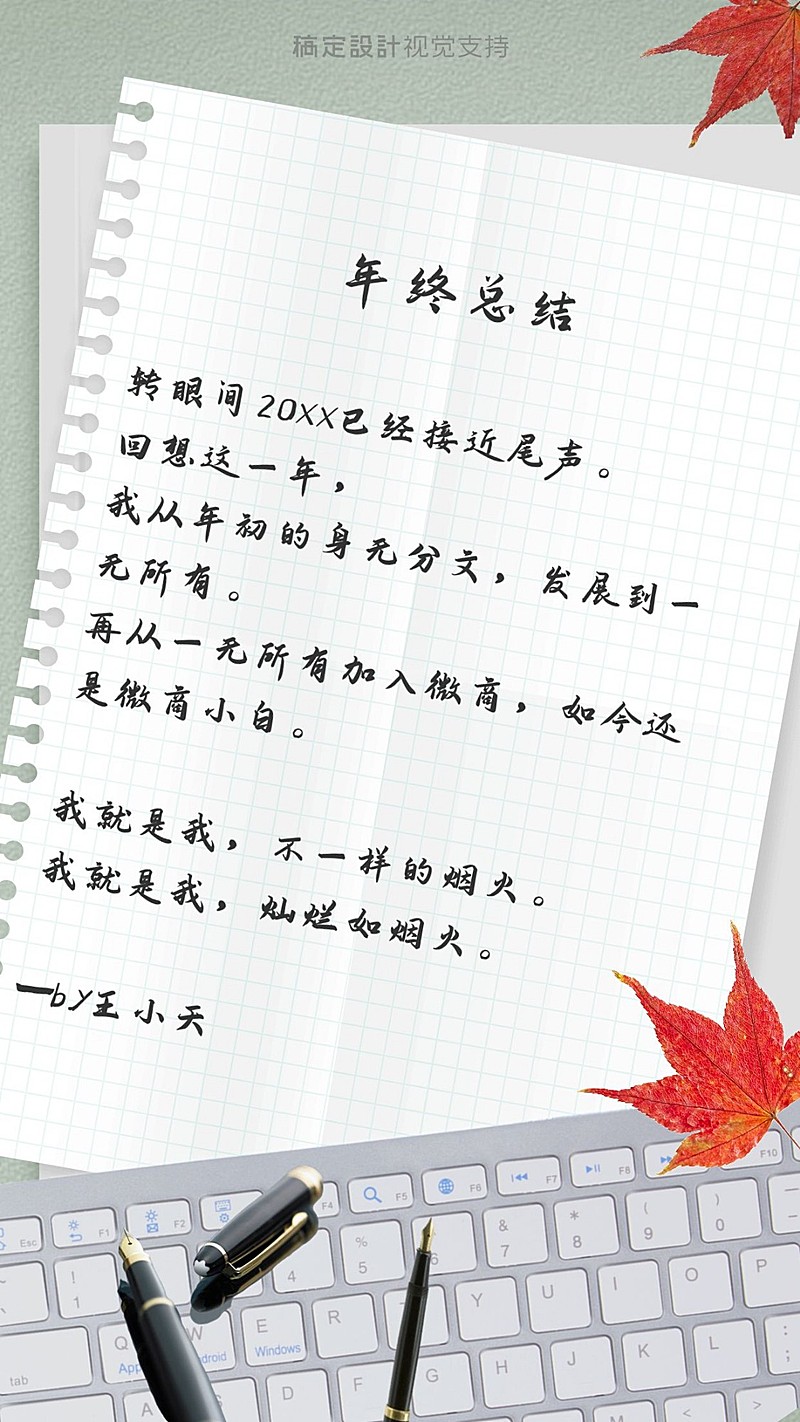 稿定設計视觉支持
年终总结
转眼间20XX已经接近尾声。
回想这一年，
我从年初的身无分文，发展到一
无所有。
再从一无所有加入微商，如今还
是微商小白。
我就是我，不一样的烟火。
我就是我，灿烂如烟火。
—by王小天
Esc F1 F2 F4 F5 F6 F7 F8 F10
! 1 4 % 5 6 & 7 * 8 ( 9 ) 0
tab Q W E R Y U I O P
Windows
A D F G H J K L